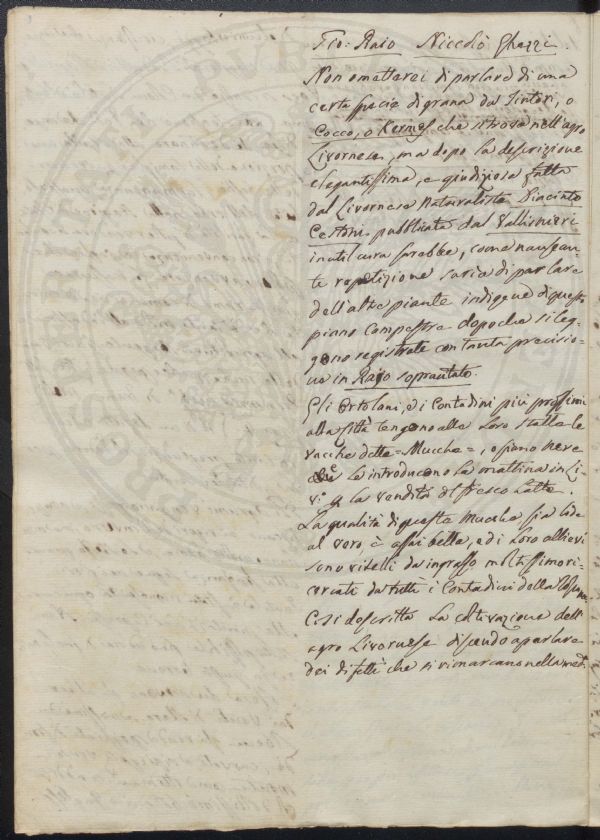 Gio: Raio Niccolò Ghezzi.
Non ometterei di parlare di una
certa specie di grana da Tintori, o
Cocco, o Kermes che si trova nell'agro
Livornese, ma dopo la descrizione
elegantissima, e giudiziosa fatta
dal Livornese Naturalista Diacinto
Cestoni pubblicata dal Vallisnieri
inutil cura sarebbe, come nausean-
te repetizione saria di parlare
dell'altre piante indigene di questo
piano Campestre dopo che si leg-
gono registrate con tanta precisio-
ne in Raio sopracitato.
Gli Ortolani, e i Contadini più prossimi
alla Città tengono alle loro stalle le
vacche dette = Mucche =, o siano nere
che le introducono la mattina in Li-
v.º p la vendita del fresco Latte.
La qualità di queste Mucche sia lode
al vero, è assai bella, ed i loro allievi
sono vitelli da ingrasso moltissimo ri-
cercati da tutti i Contadini della Toscana
Così descritta la coltivazione dell'
agro Livornese discendo a parlare
dei difetti che si rimarcano nella med.ª